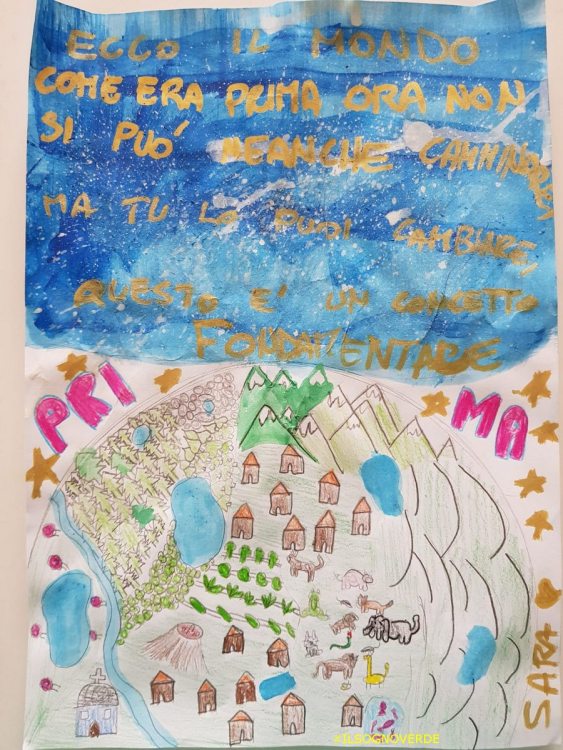 ECCO IL MONDO
COME ERA PRIMA ORA NON
SI PUO' NEANCHE CAMMINARCI
MA TU LO PUOI CAMBIARE,
QUESTO E' UN CONCETTO
FONDAMENTALE
PRI MA
SARA
#ILSOGNOVERDE